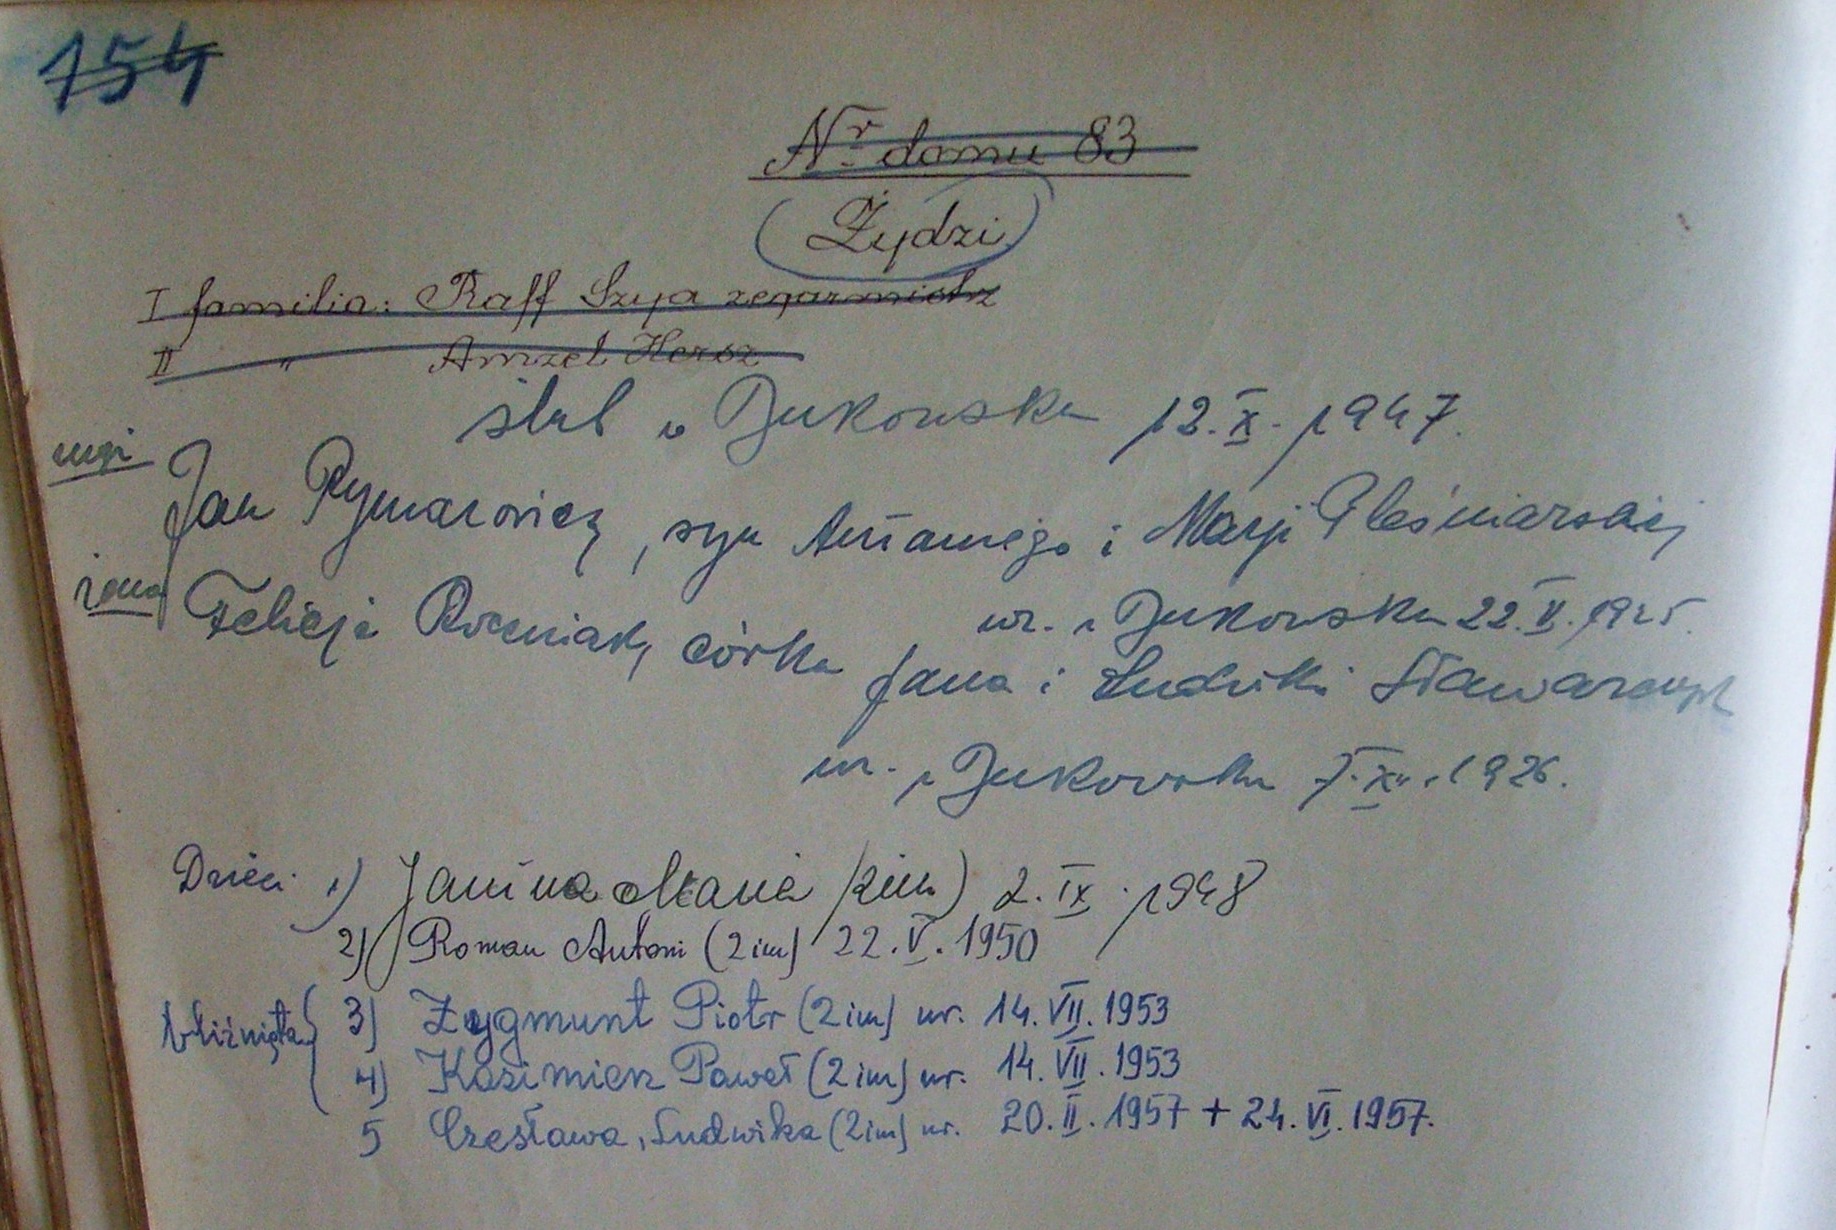 154
Nr domu 83
Żydzi
I familia: Raff Szyja zegarmistrz
II " Amzel Hersz
ślub w Bukowsku 12.X.1947.
mąż
Jan Rymarowicz, syn Antoniego i Marji Pleśniarskiej
ur. w Bukowsku 22.II.1925.
żona Felicja Roczniak, córka Jana i Ludwiki Stawarczyk
ur. w Bukowsku 7.XII.1926.
Dzieci 1) Janina Maria (2 im) 2.IX.1948
2) Roman Antoni (2 im) 22.V.1950
bliźnięta 3) Zygmunt Piotr (2 im) ur. 14.VII.1953
4) Kazimierz Paweł (2 im) ur. 14.VII.1953
5 Czesława, Ludwika (2 im) ur. 20.II.1957 + 24.VI.1957.